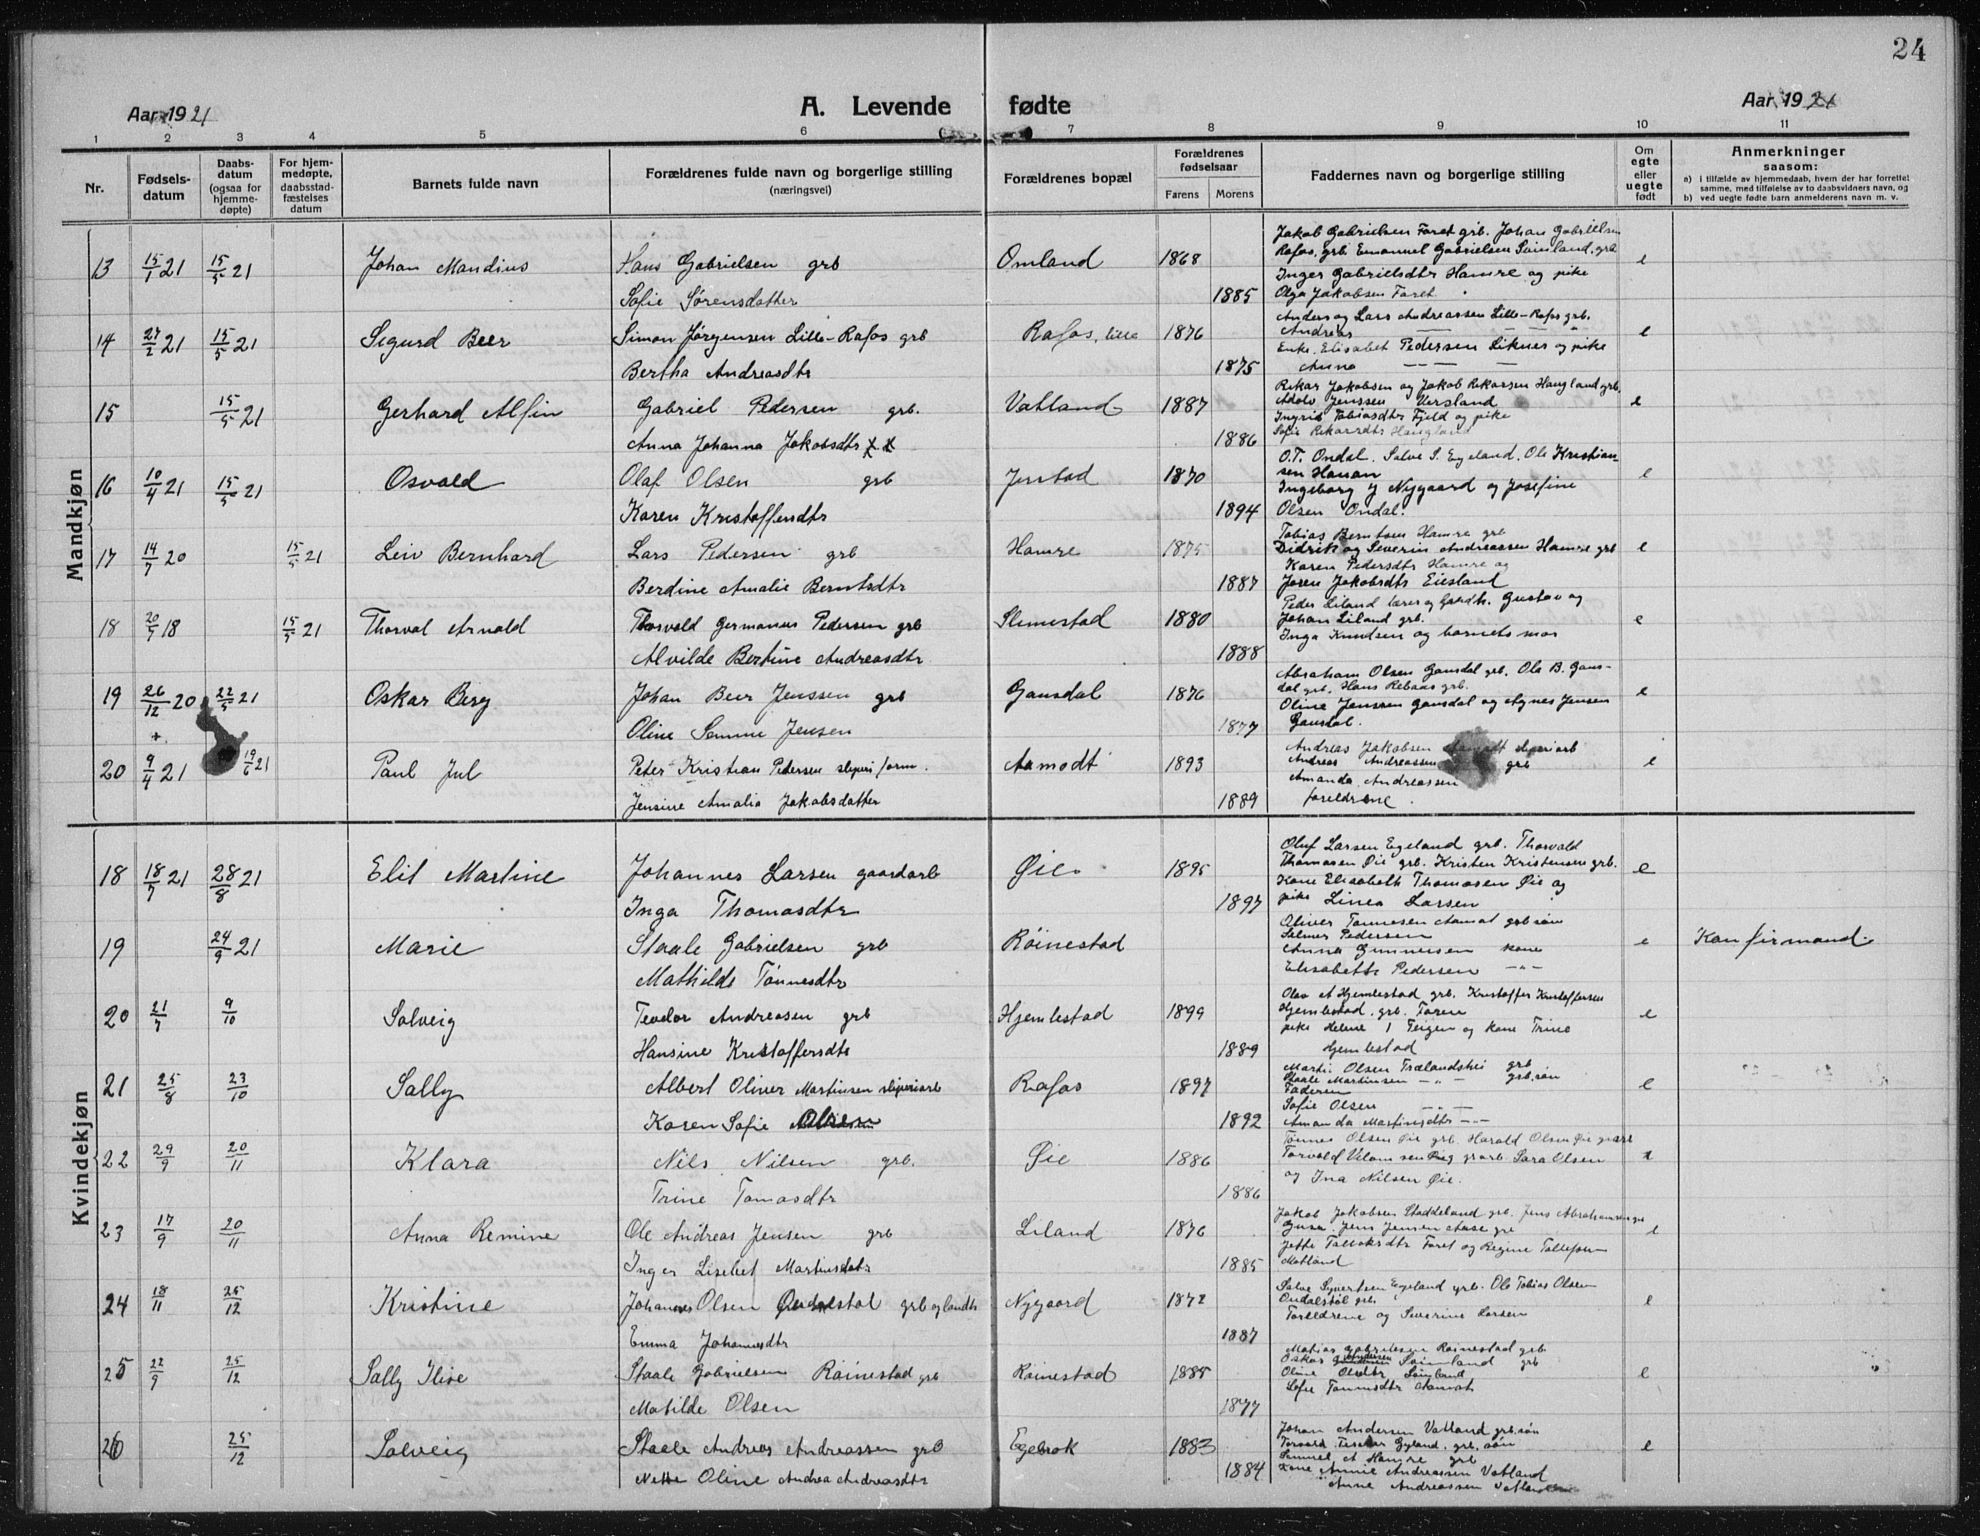 24
Aar 1921
A. Levende fødte
Aar 1921
1 2 3 4 5 6 7 8 9 10 11
Nr.
Fødsels-
datum
Daabs-
datum
(ogsaa for
hjemme-
døpte)
For hjem-
medøpte,
daabsstad-
fæstelses
datum
Barnets fulde navn
Forældrenes fulde navn og borgerlige stilling
(næringsvei)
Forældrenes bopæl
Forældrenes
fødselsaar
Farens Morens
Faddernes navn og borgerlige stilling
Om
egte
eller
uegte
født
Anmerkninger
saasom:
a) i tilfælde av hjemmedaab, hvem der har forrettet
samme, med tilføielse av to daabsvidners navn, og
b) ved uegte fødte barn anmelderens navn m. v.
Mandkjøn
13 15/1 21 15/5 21 Johan Mandius Hans Gabrielsen grb Omland 1868 e
Sofie Sørensdatter 1885
Jakob Gabrielsen Foret grb. Johan Gabrielsen
Rafos, grb Emanuel Gabrielsen Søinland, grb
Inger Gabrielsdtr Hamre og pike
Olga Jakobsen Foret
14 27/2 21 15/5 21 Sigurd Beer Simon Jørgensen Lille-Rafos grb Rafos, lille 1876 e
Bertha Andreasdtr 1875
Anders og Lars Andreassen Lille-Rafos grb.
Andreas — — "
Enke. Elisabet Pedersen Liknes og pike
Anna — — —
15 15/5 21 Gerhard Alfin Gabriel Pedersen grb. Vatland 1887 e
Anna Johanna Jakobsdtr 1886
Rikar Jakobsen og Jakob Rikarsen Haugland grb.
Adolv Jenssen Versland
Ingrid Tobiasdtr Fjeld og pike
Sofie Rikarsdtr Haugland
16 10/4 21 15/5 21 Osvald Olaf Olsen grb Jerstad 1870 e
Karen Kristoffersdtr 1894
O.T. Ondal. Salve S. Egeland. Ole Kristian-
sen Hanan
Ingeborg J Nygaard og Josefine
Olsen Ondal.
17 14/7 20 15/5 21 Leiv Bernhard Lars Pedersen grb Hamre 1875 e
Berdine Amalie Berntsdtr 1887
Tobias Berntsen Hamre grb
Didrik og Severin Andreassen Hamre grb
Karen Pedersdtr Hamre og
Joren Jakobsdtr Eiesland
18 20/7 18 15/5 21 Thorval Arnold Thorvald Germanus Pedersen grb Slimestad 1880 e
Alvilde Bertine Andreasdtr. 1888
Peder Liland lærer og Gustav og
Johan Liland grb.
Inga Knudsen og barnets mor
19 26/12 20 22/5 21 Oskar Berg Johan Beer Jenssen grb Gausdal 1876 e
Oline Semine Jensen 1877
Abraham Olsen Gausdal grb. Ole B. Gaus-
dal grb. Hans Rebaas grb.
Oline Jenssen Gausdal og Agnes Jensen
Gausdal.
20 9/4 21 19/6 21 Paul Jul Peter Kristian Pedersen sliperi form. Aamodt 1893 e
Jensine Amalia Jakobsdatter 1889
Andreas Jakobsen Aamodt sliperiarb
Andreas Andreassen grb
Amanda Andreassen
foreldrene
Kvindekjøn
18 18/7 21 28/8 21 Elit Martine Johannes Larsen gaardarb Øie 1895 e
Inga Thomasdtr 1897
Oluf Larsen Egeland grb. Thorvald
Thomasen Øie grb. Kristen Kristensen grb.
Kone Elisabeth Thomasen Øie og
pike Linea Larsen
19 24/9 21 Marie Staale Gabrielsen grb Röinestad e Konfirmand.
Mathilde Tønnesdtr
Oliver Tønnesen Aamot grb.søn
Selmer Pedersen
Anna Gunnersen kone
Elisabeth Pedersen — " —
20 21/7 9/10 Solveig Teodor Andreasen grb Hjemlestad 1899 e
Hansine Kristoffersdtr 1889
Olav A Hjemlestad grb. Kristoffer Kristoffersen
Hjemlestad, grb. Torine
pike Helene I Teigen og kone Trine
Hjemlestad
21 25/8 23/10 Sally Albert Oliver Martinsen sliperiarb Rafos 1897 e
Karen Sofie Olsen 1892
Martin Olsen Trælandshei grb
Staale Martinsen — " — grb.søn
Faderen
Sofie Olsen — " —
Amanda Martinsdtr — " —
22 29/9 20/11 Klara Nils Nilsen grb. Øie 1886
Trine Tomasdtr 1886
Tønnes Olsen Øie grb. Harald Olsen Øie
Torvald Øie grarb. Sara Olsen
og Ina Nilsen Øie.
23 17/9 20/11 Anna Remine Ole Andreas Jensen grb Liland 1876 e
Inger Lisebet Martinsdatr 1885
Jakob Jakobsen Staddeland grb. Jens Abrahamsen
Jens Jensen Aase
Jette Tallaksdtr Foret og Regine Tallefsen
Motland
24 18/11 25/12 Kristine Johannes Olsen Ondalstøl grb og landh Nygaard 1872 e
Emma Johannesdtr 1887
Salve Syvertsen Egeland grb. Ole Tobias Olsen
Ondalstöl grb.
Foreldrene og Severine Larsen
25 22/9 25/12 Sally Ilise Staale Gabrielsen Röinestad grb Röinestad 1885 e
Matilde Olsen 1877
Matias Gabrielsen Röinestad grb
Oskar Søinland grb
Oline Olsdtr Søinland
Sofie Tønnesdtr Aamot
26 25/12 Solveig Staale Andreas Andreassen grb Egebrok 1883 e
Nette Oline Andrea Andreasdtr 1884
Johan Andersen Vatland grb.søn
Torvald Gyland, grb.søn
Samuel A Hamre grb
Kone Annie Andreassen Vatland
Anne Andreassen Vatland